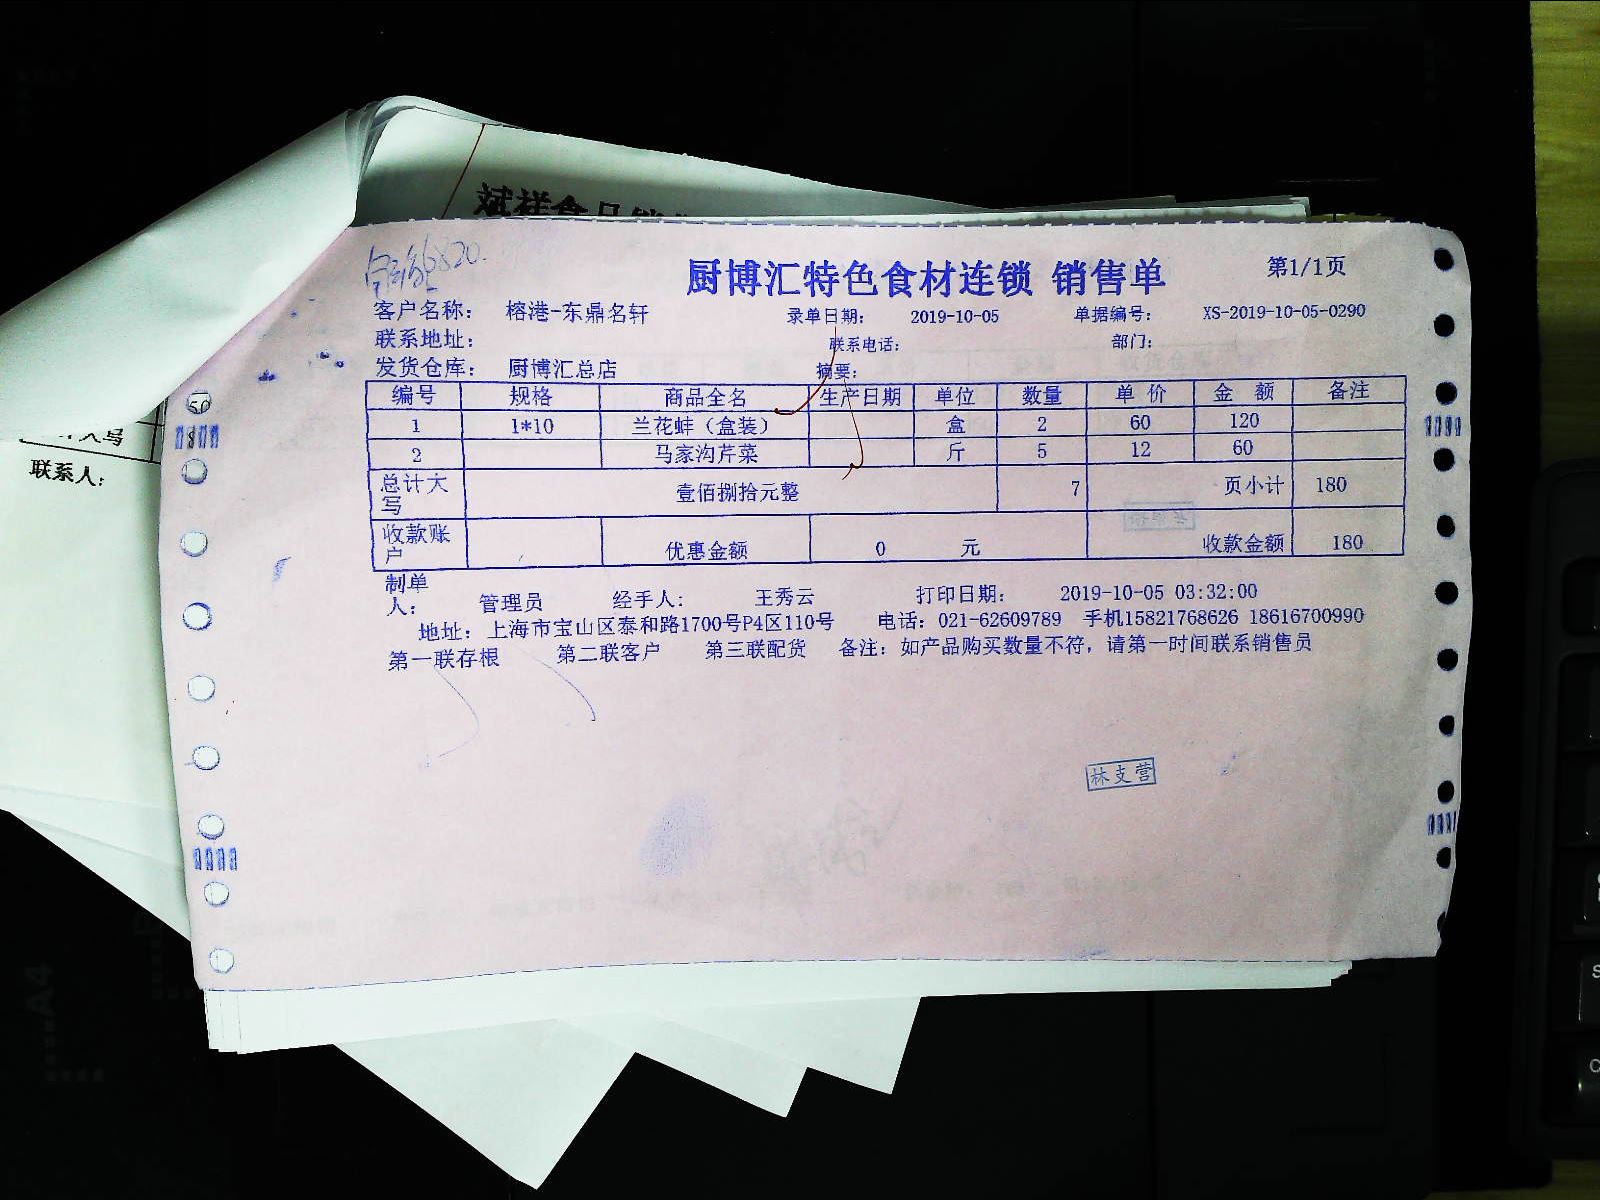 斌祥食品销
厨博汇特色食材连锁 销售单
第1/1页
客户名称： 榕港-东鼎名轩 录单日期： 2019-10-05 单据编号： XS-2019-10-05-0290
联系地址： 联系电话： 部门：
发货仓库： 厨博汇总店 摘要：
编号 规格 商品全名 生产日期 单位 数量 单 价 金 额 备注
1 1*10 兰花蚌（盒装） 盒 2 60 120
2 马家沟芹菜 斤 5 12 60
总计大写 壹佰捌拾元整 7 页小计 180
收款账户 优惠金额 0 元 收款金额 180
制单人： 管理员 经手人： 王秀云 打印日期： 2019-10-05 03:32:00
地址：上海市宝山区泰和路1700号P4区110号 电话：021-62609789 手机15821768626 18616700990
第一联存根 第二联客户 第三联配货 备注：如产品购买数量不符，请第一时间联系销售员
林支营
大写
联系人：
50
A4